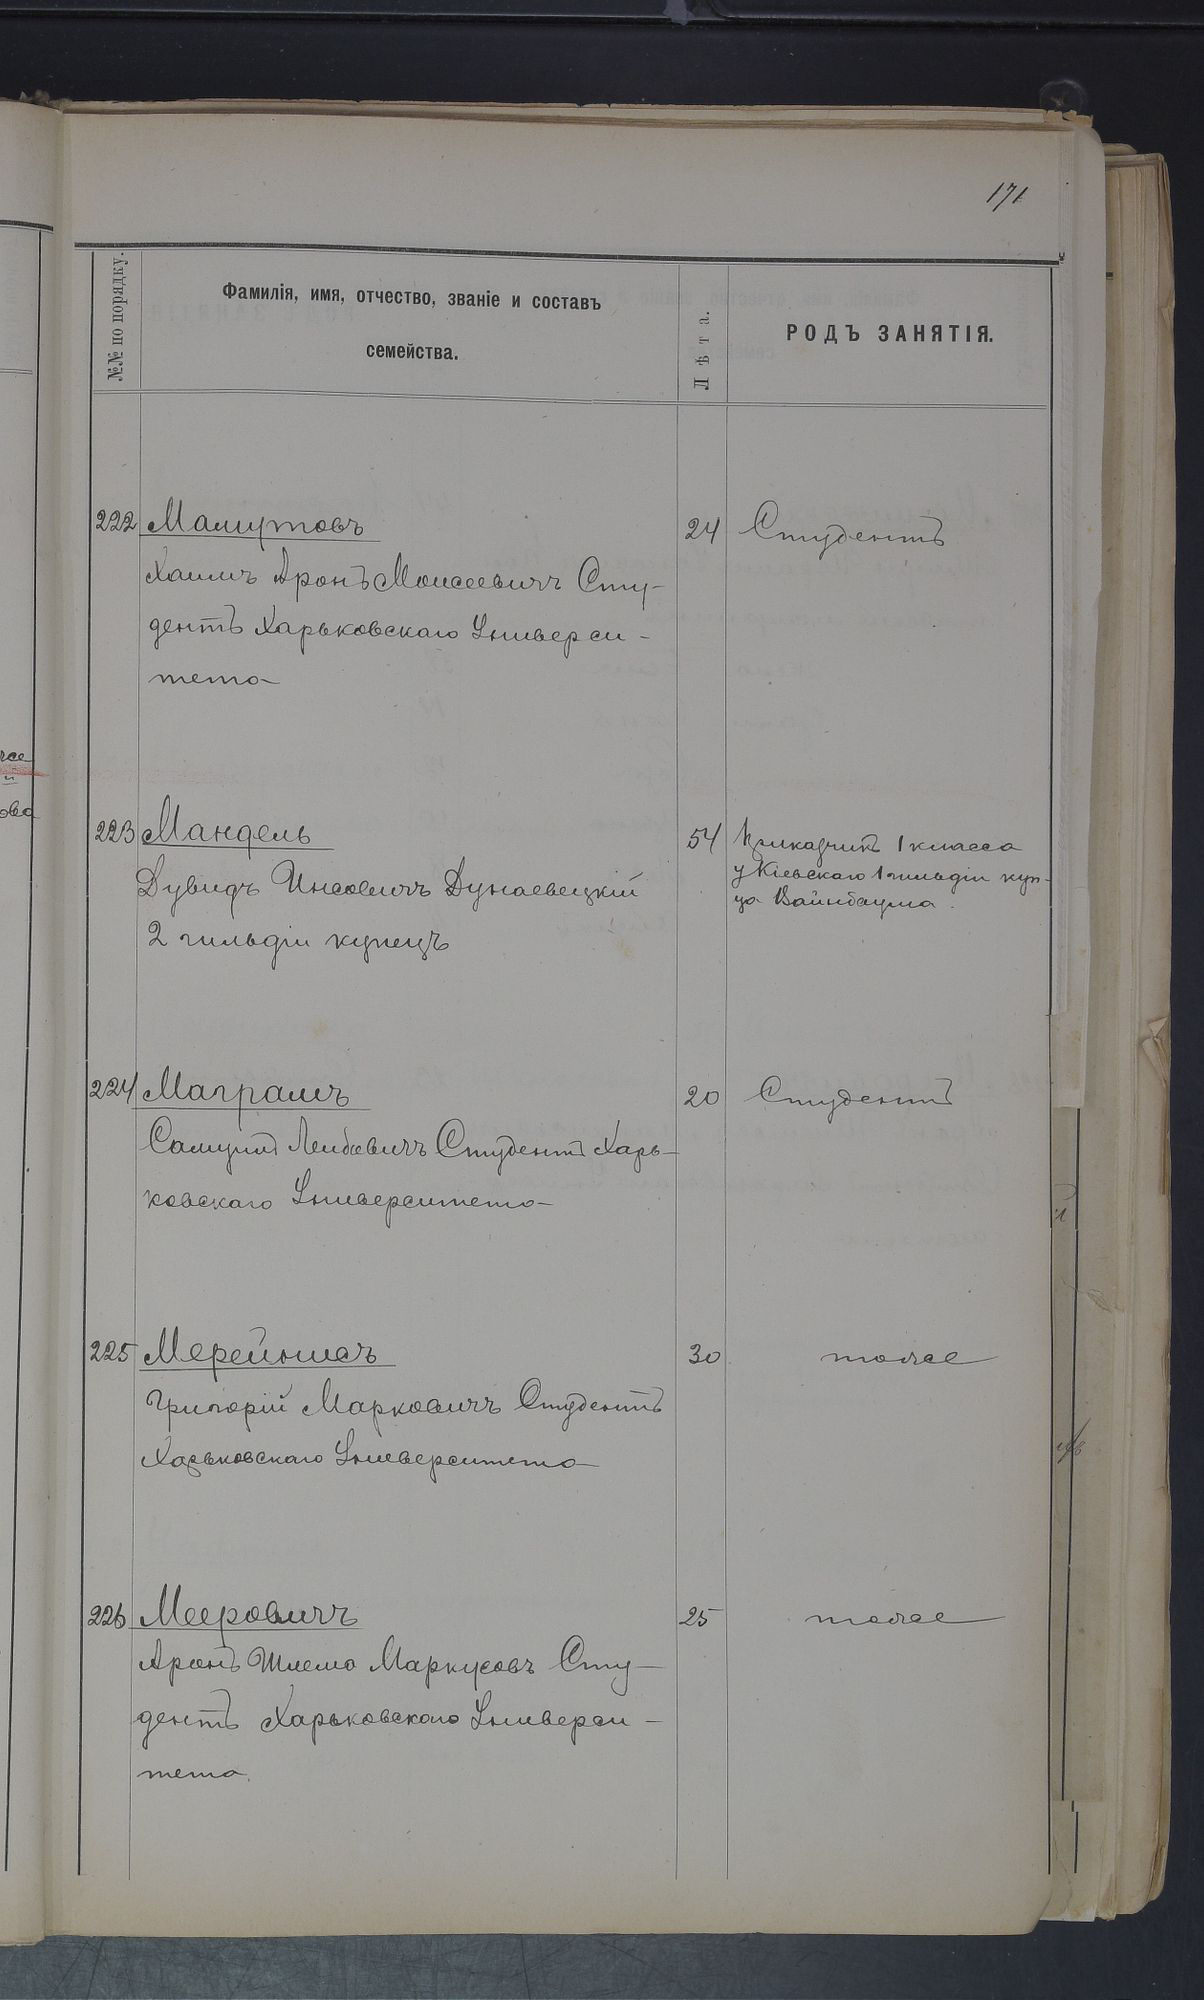 171
№№ по порядку.
Фамилія, имя, отчество, званіе и составъ
семейства.
Лѣта.
РОДЪ ЗАНЯТІЯ.
222 Мамутовъ 24 Студентъ
Хаимъ Аронъ Моисеевичъ Сту-
дентъ Харьковскаго Универси-
тета
223 Мандель 54 Приказчикъ 1 класса
у Кіевскаго 1 гильдіи куп-
ца Вайнбаума.
Дувидъ Дунаевецкій
2 гильдіи купецъ
224 Маграмъ 20 Студентъ
Самуилъ Лейбовичъ Студентъ Харь-
ковскаго Университета
225 Мерейнисъ 30 тоже
Григорій Марковичъ Студентъ
Харьковскаго Университета
226 Мееровичъ 25 тоже
Аронъ Шлема Маркусовъ Сту-
дентъ Харьковскаго Универси-
тета.